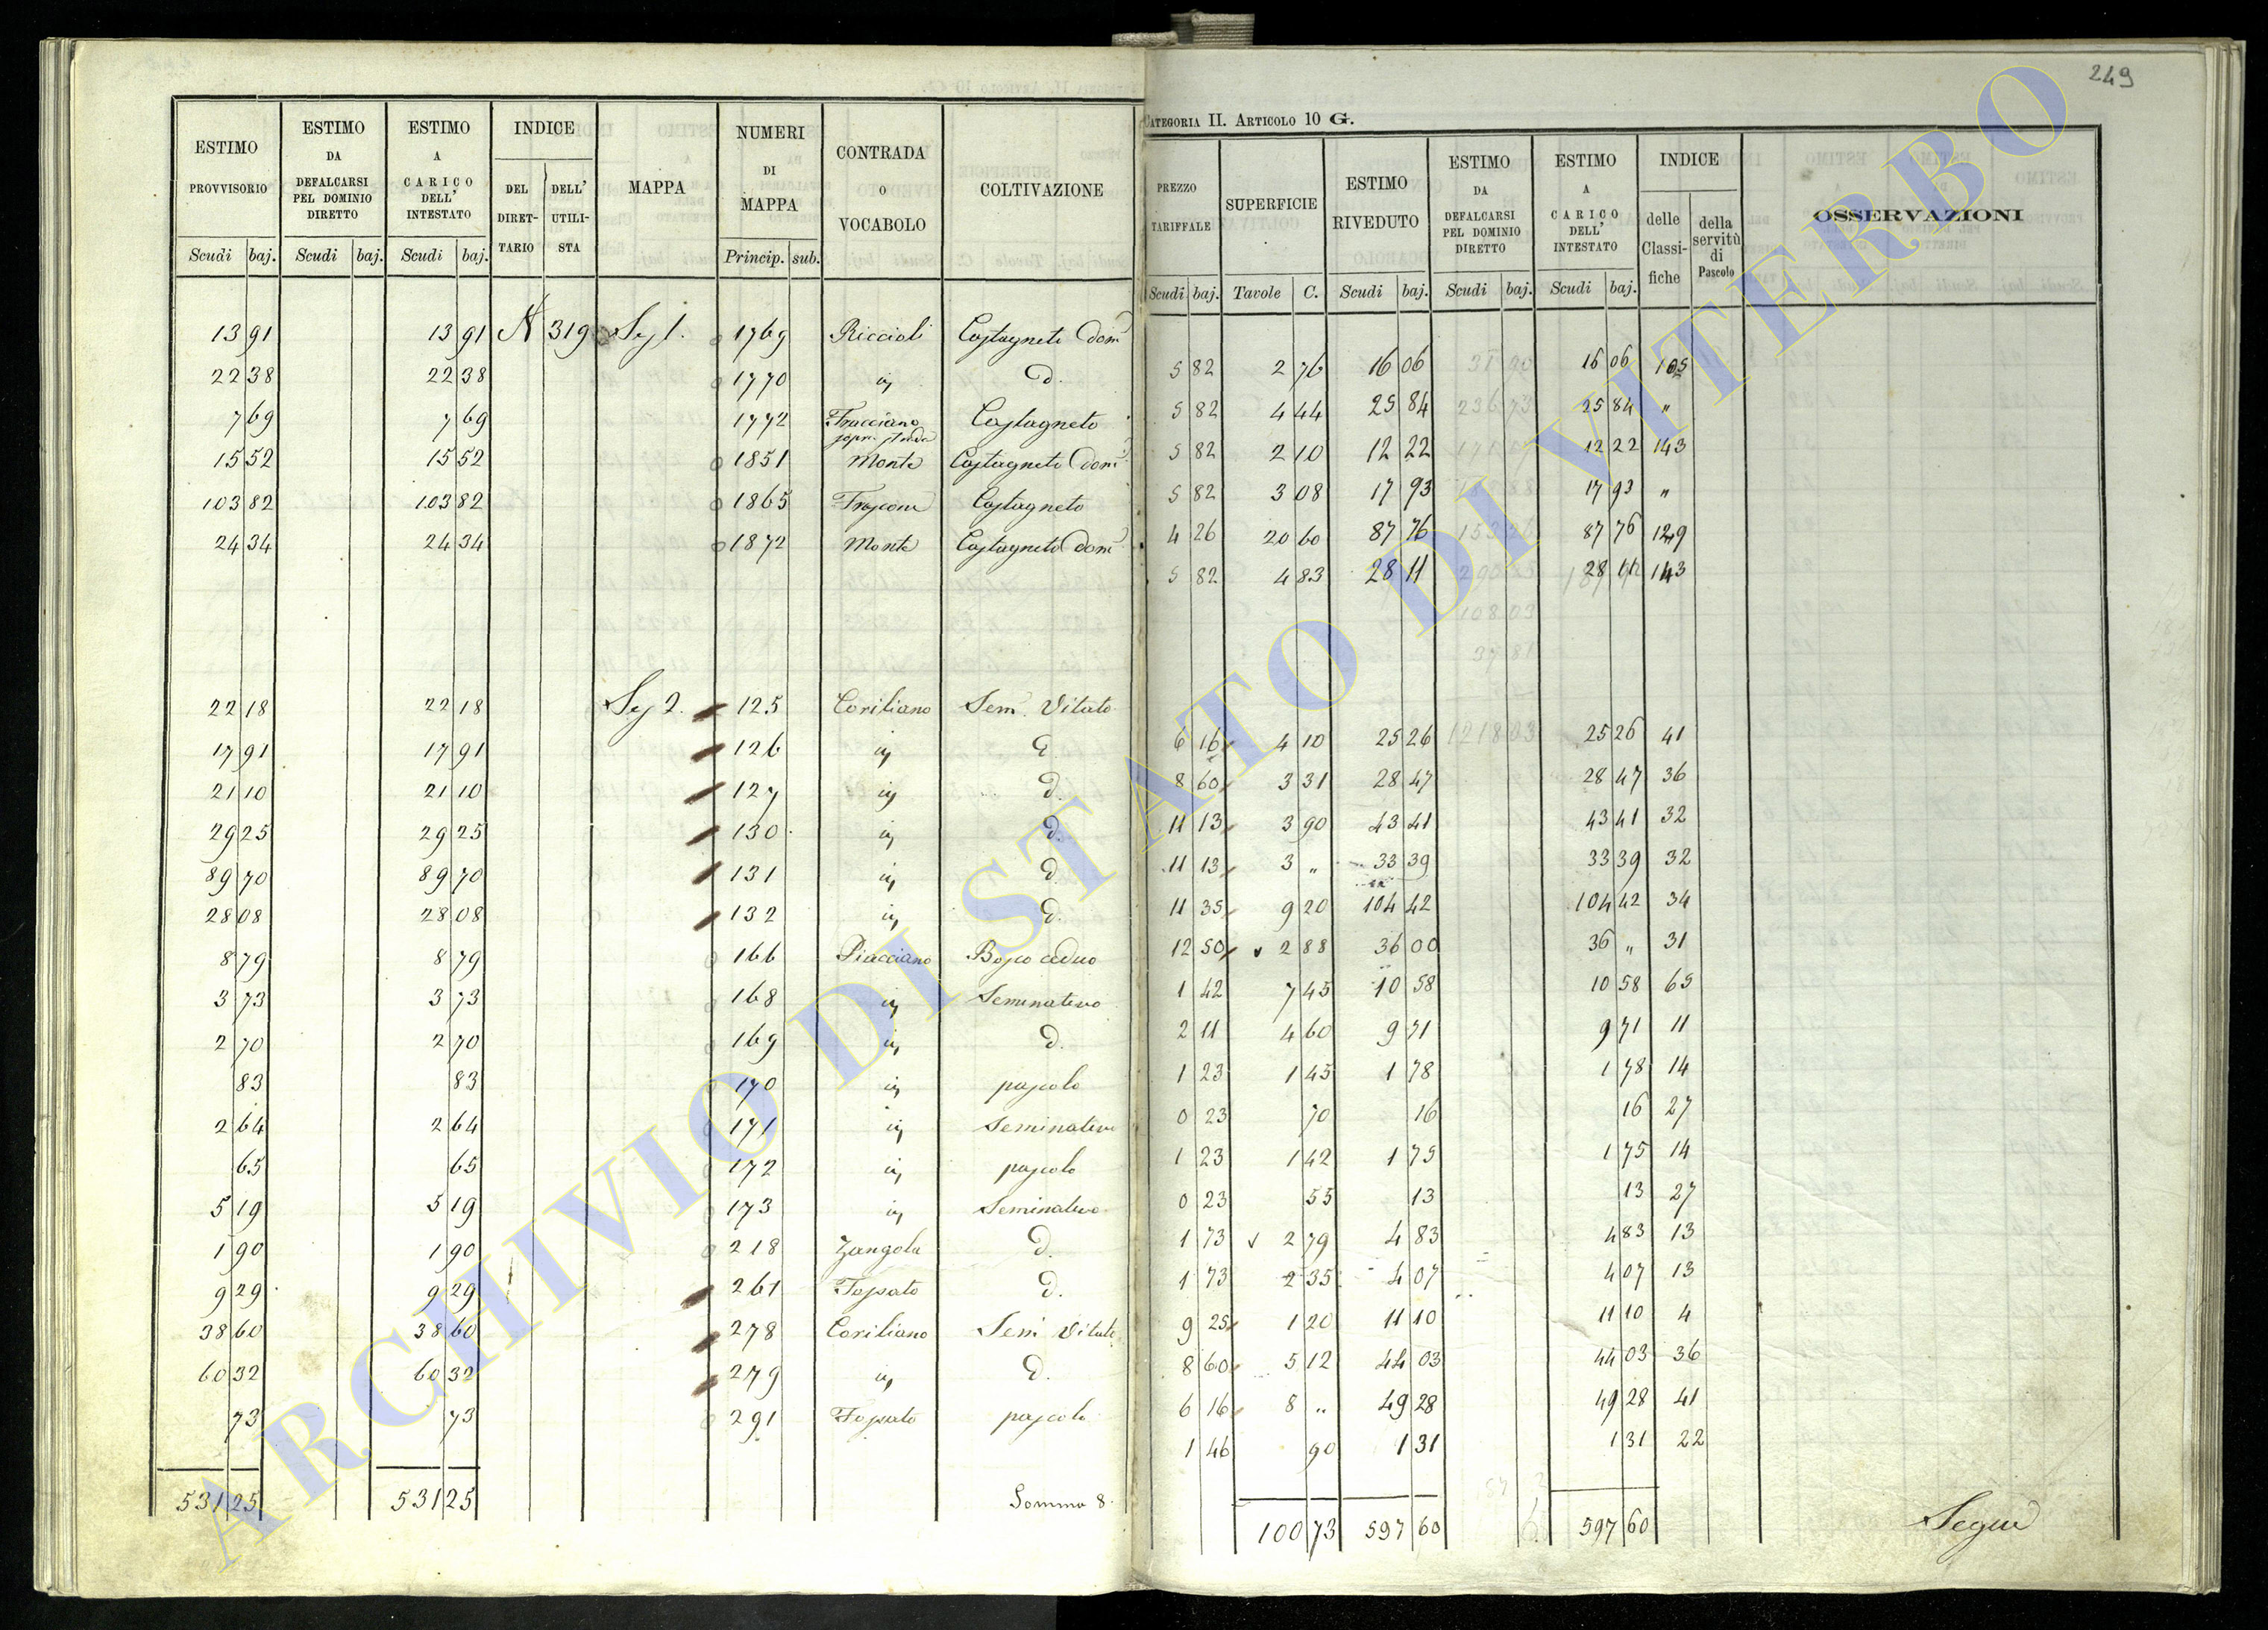 249
CATEGORIA II. ARTICOLO 10 G.
ESTIMO PROVVISORIO Scudi baj.
ESTIMO DA DEFALCARSI PEL DOMINIO DIRETTO Scudi baj.
ESTIMO A CARICO DELL' INTESTATO Scudi baj.
INDICE DEL DIRETTARIO DELL' UTILISTA
MAPPA
NUMERI DI MAPPA Princip. sub.
CONTRADA O VOCABOLO
COLTIVAZIONE
PREZZO TARIFFALE Scudi baj.
SUPERFICIE Tavole C.
ESTIMO RIVEDUTO Scudi baj.
ESTIMO DA DEFALCARSI PEL DOMINIO DIRETTO Scudi baj.
ESTIMO A CARICO DELL' INTESTATO Scudi baj.
INDICE delle Classifiche della servitù di Pascolo
OSSERVAZIONI
13 91 13 91 A 319 Sez 1. 1769 Riccioli Castagneto Dom 5 82 2 76 16 06 16 06 105
22 38 22 38 1770 in d. 5 82 4 44 25 84 25 84 "
7 69 7 69 1772 Fracciano sopra strada Castagneto 5 82 2 10 12 22 12 22 143
15 52 15 52 1851 Monte Castagneto Dom 5 82 3 08 17 93 17 93 "
103 82 103 82 1865 Castagneto 4 26 20 60 87 76 87 76 129
24 34 24 34 1872 Monte Castagneto Dom 5 82 4 83 28 11 28 11 143
22 18 22 18 Sez 2. 125 Coriliano Sem. Vitato 6 16 4 10 25 26 25 26 41
17 91 17 91 126 in d. 8 60 3 31 28 47 28 47 36
21 10 21 10 127 in d. 11 13 3 90 43 41 43 41 32
29 25 29 25 130 in d. 11 13 3 " 33 39 33 39 32
89 70 89 70 131 in d. 11 35 9 20 104 42 104 42 34
28 08 28 08 132 in d. 12 50 2 88 36 00 36 " 31
8 79 8 79 166 Piacciano Bosco ceduo 1 42 7 45 10 58 10 58 65
3 73 3 73 168 in Seminativo 2 11 4 60 9 71 9 71 11
2 70 2 70 169 in d. 1 23 1 45 1 78 1 78 14
83 83 170 in pascolo 0 23 70 16 16 27
2 64 2 64 171 in Seminativo 1 23 1 42 1 75 1 75 14
65 65 172 in pascolo 0 23 55 13 13 27
5 19 5 19 173 in Seminativo 1 73 2 79 4 83 4 83 13
1 90 1 90 218 Zangola d. 1 73 2 35 4 07 4 07 13
9 29 9 29 261 Fossato d. 9 25 1 20 11 10 11 10 4
38 60 38 60 278 Coriliano Sem Vitato 8 60 5 12 44 03 44 03 36
60 32 60 32 279 in d. 6 16 8 " 49 28 49 28 41
73 73 291 Fossato pascolo 1 46 90 1 31 1 31 22
531 25 531 25 Somma 8. 100 73 597 60 597 60 Segue
ARCHIVIO DI STATO DI VITERBO